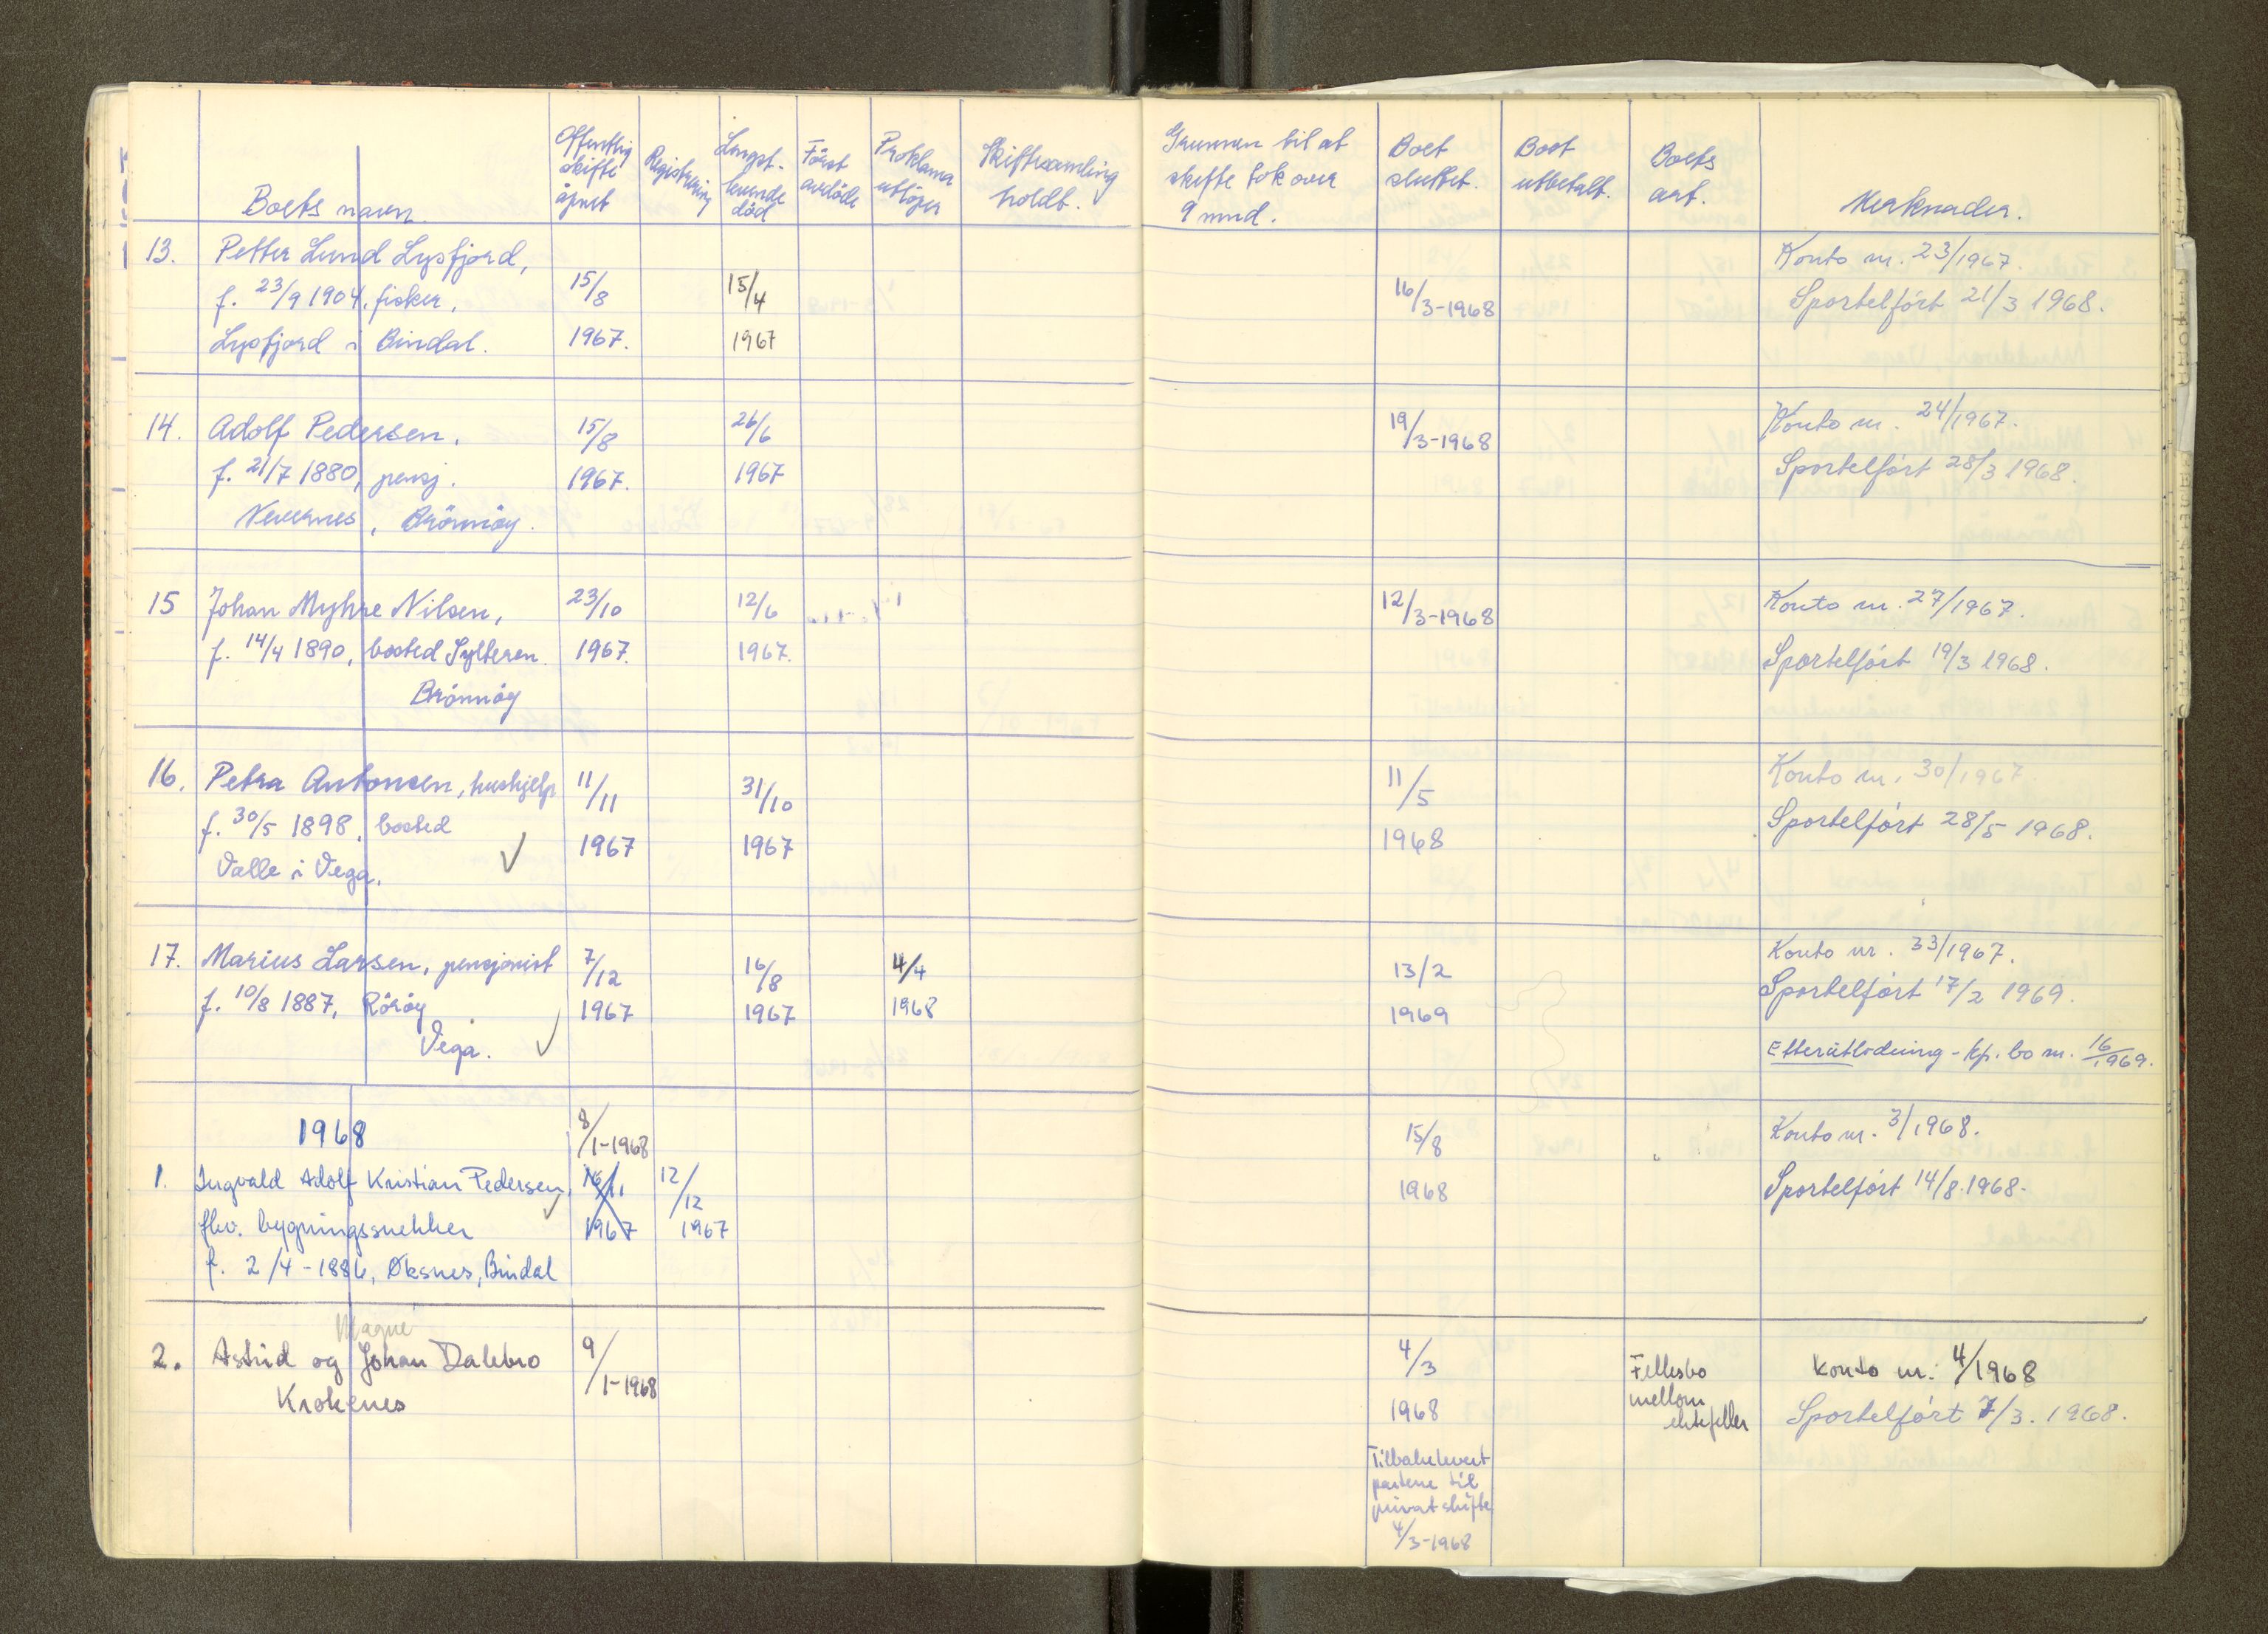 Boets navn.
Offentlig skifte åpnet
Registrering
Lengst-levende död
Först avdöde
Proklama utlöper
Skiftesamling holdt.
Grunnen til at skifte tok over 9 mnd.
Boet sluttet.
Boet utbetalt.
Boets art.
Merknader.
13. Petter Lund Lysfjord, 15/8 15/4 16/3-1968 Konto nr. 23/1967.
f. 23/9 1904, fisker, 1967. 1967 Sportelført 21/3 1968.
Lysfjord i Bindal.
14. Adolf Pedersen, 15/8 26/6 19/3-1968 Konto nr. 24/1967.
f. 21/7 1880, pensj. 1967. 1967 Sportelført 28/3 1968.
Nevernes, Brönnöy.
15 Johan Myhre Nilsen, 23/10 12/6 12/3-1968 Konto nr. 27/1967.
f. 14/4 1890, bosted Sylteren 1967. 1967. Sportelført 19/3 1968.
Brönnöy
16. Petra Antonsen, hushjelp 11/11 31/10 11/5 Konto nr. 30/1967.
f. 30/5 1898, bosted 1967 1967 1968 Sportelført 28/5 1968.
Valle i Vega.
17. Marius Larsen, pensjonist 7/12 16/8 4/4 13/2 Konto nr. 33/1967.
f. 10/8 1887, Röröy 1967 1967 1968 1969 Sportelført 17/2 1969.
Vega. Etterutlodning - kp. bo nr. 16/1969.
1968 8/1-1968 15/8 Konto nr. 3/1968.
1. Ingvald Adolf Kristian Pedersen, 12/12 1968 Sportelført 14/8.1968.
fhv. bygningssnekker 1967 1967
f. 2/4-1886, Øksnes, Bindal
Magne
2. Astrid og Johan Dalebro 9/1-1968 4/3 Fellesbo Konto nr: 4/1968
Krokenes 1968 mellom ektefeller Sportelført 7/3. 1968.
Tilbakelevert
partene til
privat skifte
4/3-1968